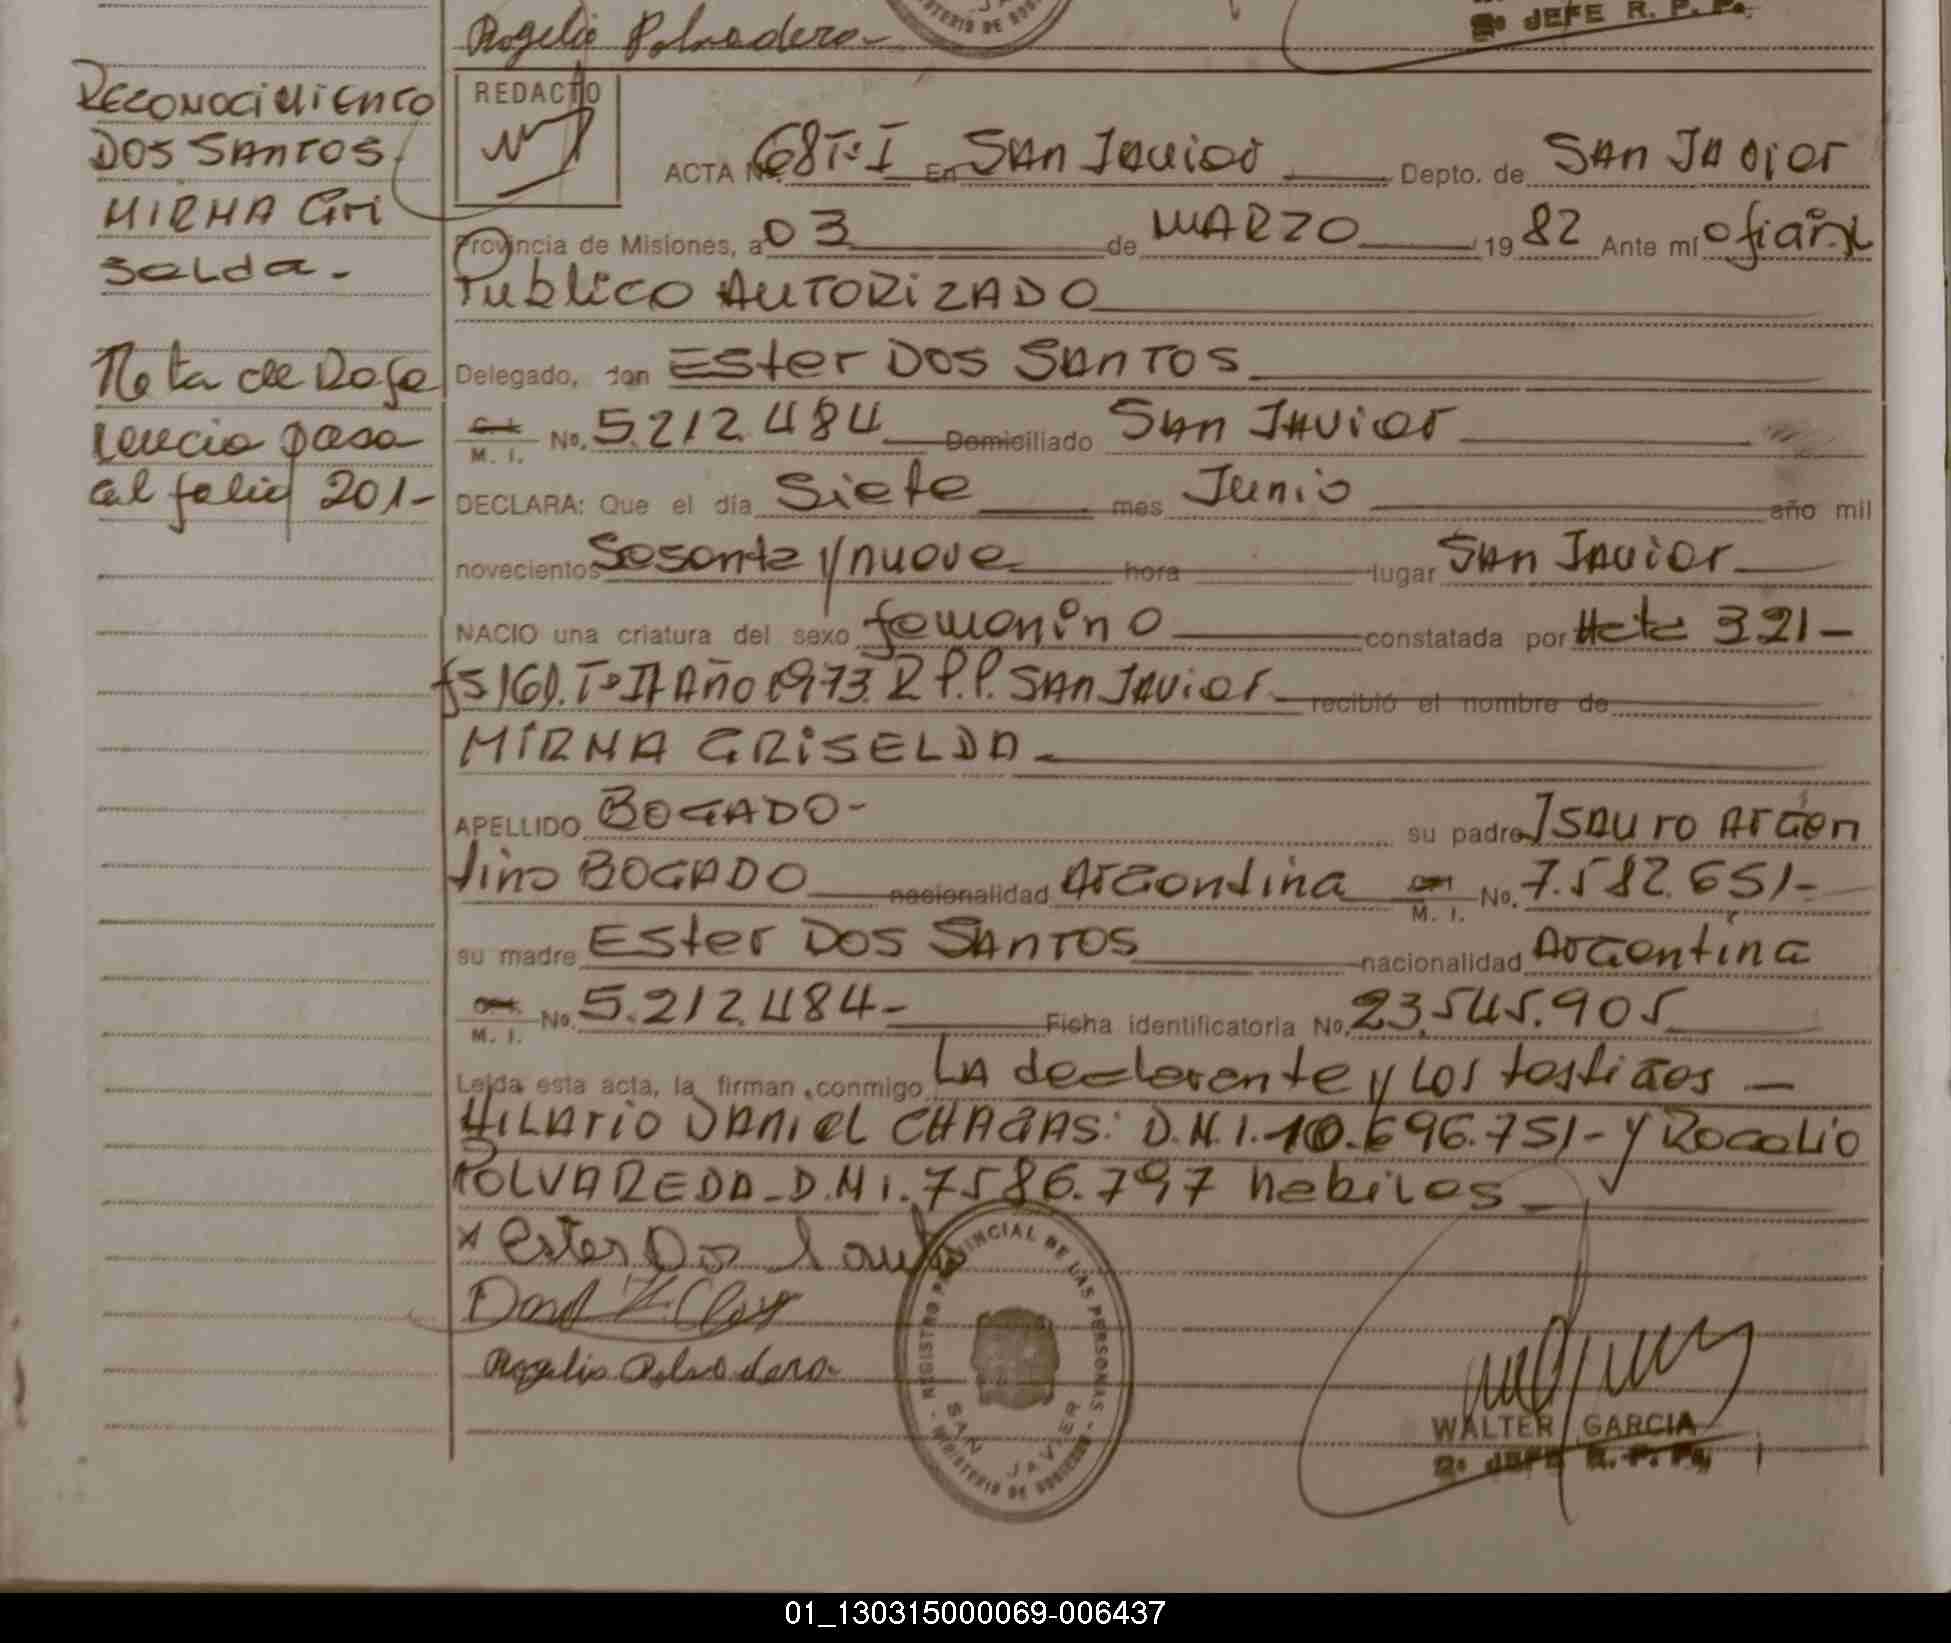 Rogelio Polvadera-
2º JEFE R. P. Ps.
RECONOCIMIENTO
DOS SANTOS
MIRNA Gri
selda.-
Nota de Refe
rencia pasa
al folio 201-
REDACTO
ACTA Nº. 68 Tº I En San Javier Depto. de San Javier
Provincia de Misiones, a 03 de MARZO 19 82 Ante mí oficial
Publico AUTORIZADO
Delegado, don Ester Dos Santos
M. I. Nº. 5.212.484 Domiciliado San Javier
DECLARA: Que el día Siete mes Junio año mil
novecientos Sesenta y nueve hora lugar San Javier
NACIO una criatura del sexo femenino constatada por Acta 321-
fs 161. Tº II Año 1973. R P.P. San Javier recibió el nombre de
MIRNA GRISELDA.
APELLIDO BOGADO- su padre Isauro Argen
tino BOGADO nacionalidad Argentina M. I. Nº. 7.582.651-
su madre Ester Dos Santos nacionalidad Argentina
M. I. Nº. 5.212.484- Ficha identificatoria Nº. 23.545.905
Leída esta acta, la firman conmigo La declarante y los testigos —
HILARIO DANIEL CHAGAS: D.N.I. 10.696.751- y Rogelio
POLVAREDA- D.N.I. 7586.797 habiles
x Ester Dos Santos
Rogelio Polvadera-
REGISTRO PROVINCIAL DE LAS PERSONAS - MINISTERIO DE GOBIERNO -
SAN JAVIER
WALTER GARCIA
2º JEFE R. P. Ps.
01_130315000069-006437